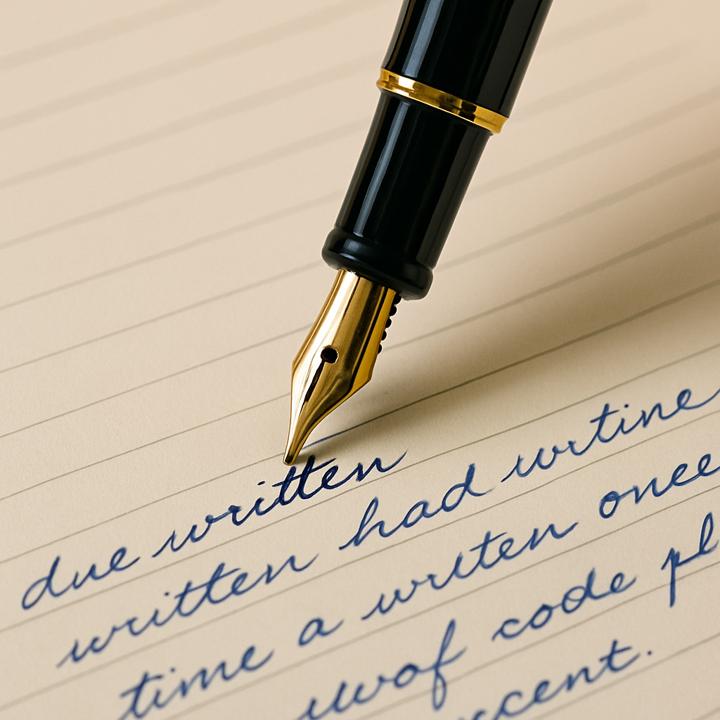 due written
written had wrtine
time a writen onee
uwof code pl
ccent.